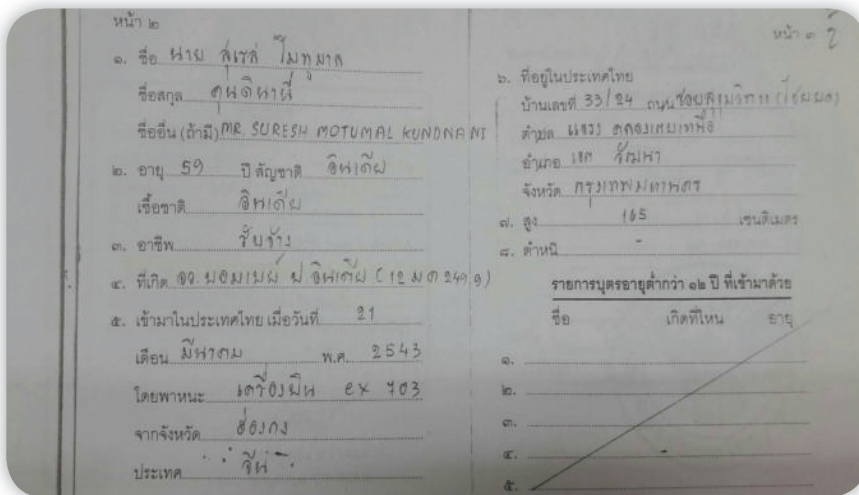 หน้า ๒
๑. ชื่อ นาย สุเรส โมทูมาล
ชื่อสกุล คุนดินานี่
ชื่ออื่น (ถ้ามี) MR. SURESH MOTUMAL KUNDNANI
๒. อายุ 59 ปี สัญชาติ อินเดีย
เชื้อชาติ อินเดีย
๓. อาชีพ รับจ้าง
๔. ที่เกิด จว. บอมเบย์ ป อินเดีย (12 ม ค 2499)
๕. เข้ามาในประเทศไทย เมื่อวันที่ 21
เดือน มีนาคม พ.ศ. 2543
โดยพาหนะ เครื่องบิน cx 703
จากจังหวัด ฮ่องกง
ประเทศ จีน
หน้า ๓
๖. ที่อยู่ในประเทศไทย
บ้านเลขที่ 33/24 ถนน ซอยสุขุมวิท
ตำบล แขวง คลองเตยเหนือ
อำเภอ เขต วัฒนา
จังหวัด กรุงเทพมหานคร
๗. สูง 165 เซนติเมตร
๘. ตำหนิ -
รายการบุตรอายุต่ำกว่า ๑๒ ปี ที่เข้ามาด้วย
ชื่อ เกิดที่ไหน อายุ
๑.
๒.
๓.
๔.
๕.